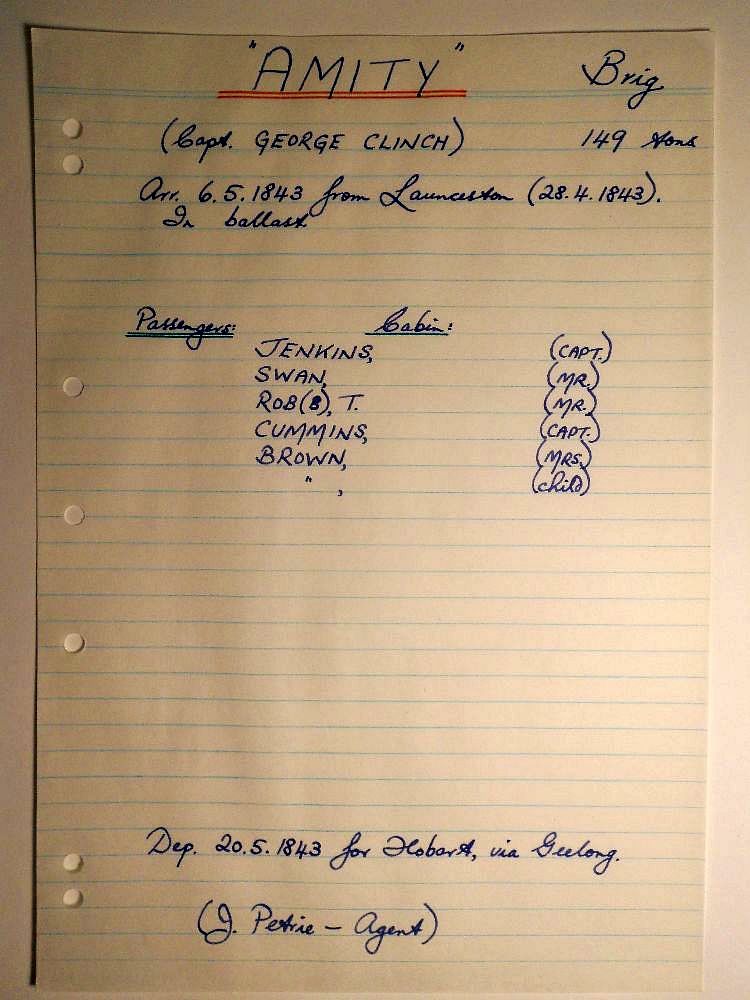 "AMITY" Brig
(Capt. GEORGE CLINCH) 149 tons
Arr. 6.5.1843 from Launceston (28.4.1843).
In ballast
Passengers: Cabin:
JENKINS, (CAPT.)
SWAN, (MR.)
ROB(B), T. (MR.)
CUMMINS, (CAPT.)
BROWN, (MRS.)
" , (child)
Dep. 20.5.1843 for Hobart, via Geelong.
(J. Petrie - Agent)